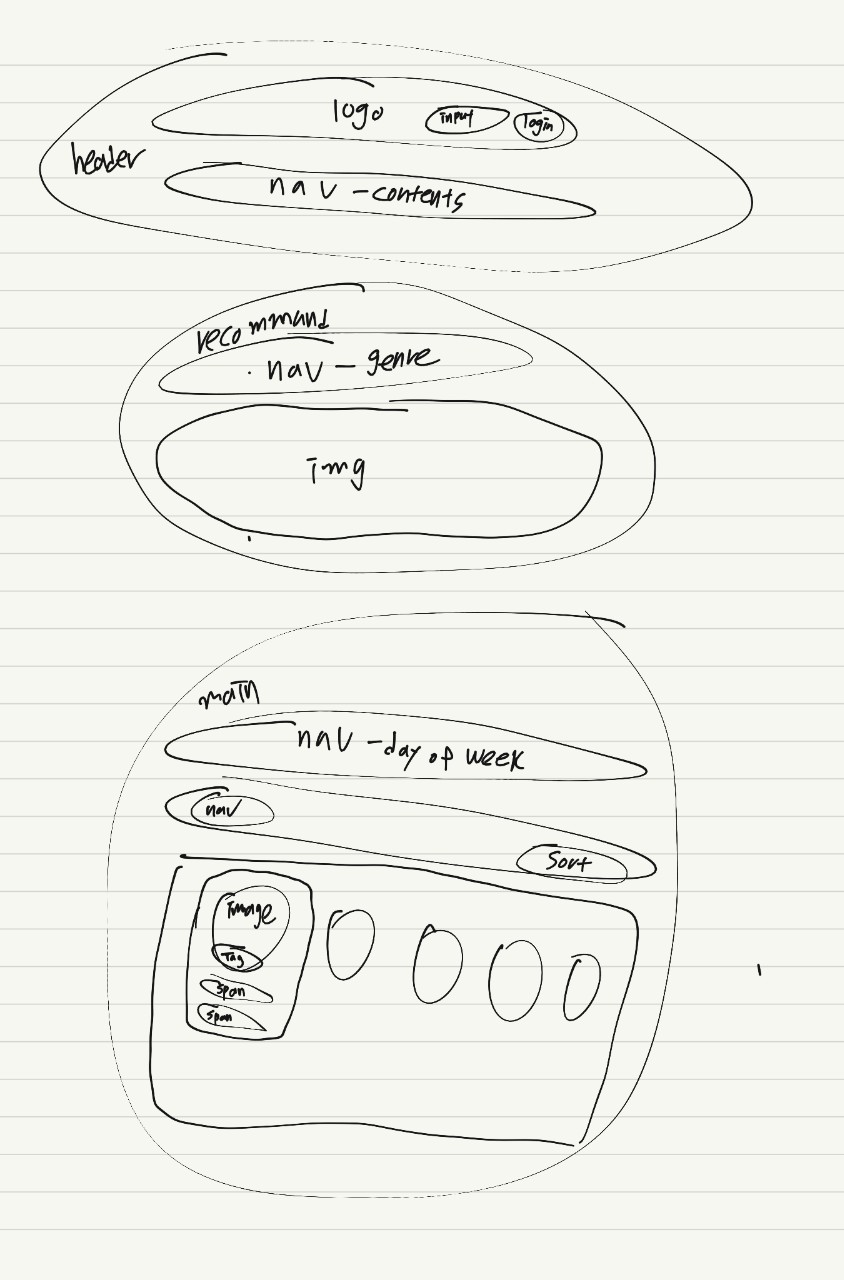 logo input login
header
nav - contents
recommand
nav - genre
img
main
nav - day of week
nav
Sort
image
Tag
span
span